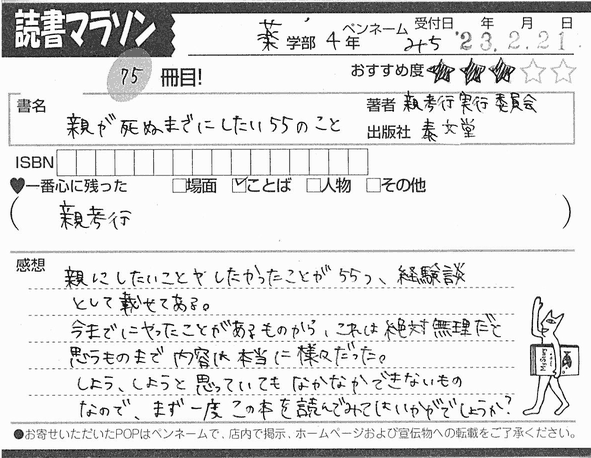 読書マラソン
薬学部 4年 ペンネーム みち 受付日 年 月 日 '23.2.21
75冊目!
おすすめ度★★★☆☆
書名 親が死ぬまでにしたい55のこと
著者 親孝行実行委員会
出版社 泰文堂
ISBN
♥一番心に残った □場面 ☑ことば □人物 □その他
(親孝行)
感想
親にしたいことやしたかったことが55つ、経験談
として載せてある。
今までにやったことがあるものから、これは絶対無理だと
思うものまで内容は本当に様々だった。
しよう、しようと思っていてもなかなかできないもの
なので、まず一度この本を読んでみてはいかがでしょうか?
●お寄せいただいたPOPはペンネームで、店内で掲示、ホームページおよび宣伝物への転載をご了承ください。